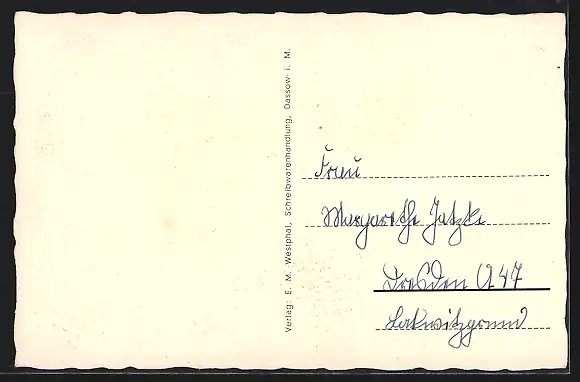 Verlag: E. M. Westphal, Schreibwarenhandlung, Dassow i. M.
Frau
Margarethe Jatzke
Dresden A 47
Lockwitzgrund